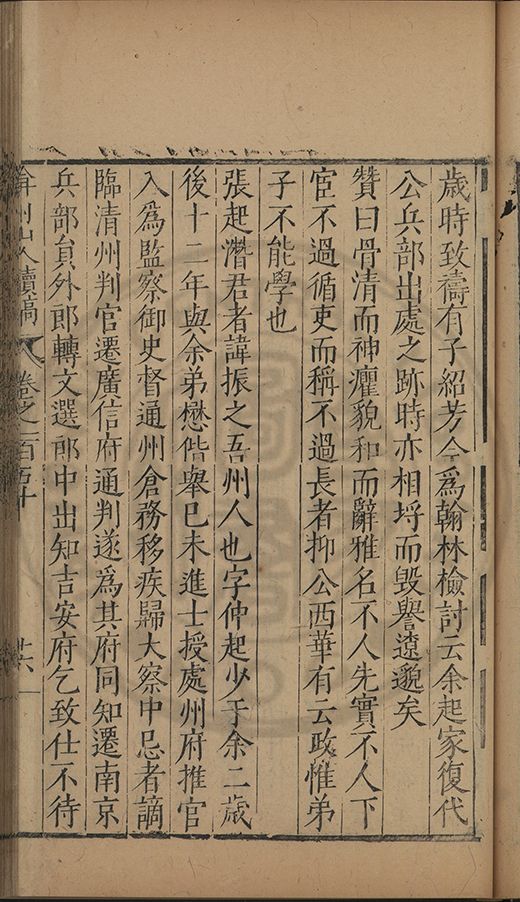 歲時致禱有子紹芳今爲翰林檢討云余起家復代
公兵部出處之跡時亦相埒而毀譽遼邈矣
贊曰骨清而神癯貌和而辭雅名不人先實不人下
官不過循吏而稱不過長者抑公西華有云政惟弟
子不能學也
張起潛君者諱振之吾州人也字仲起少于余二歲
後十二年與余弟懋偕舉己未進士授處州府推官
入爲監察御史督通州倉務移疾歸大察中忌者謫
臨清州判官遷廣信府通判遂爲其府同知遷南京
兵部員外郎轉文選郎中出知吉安府乞致仕不待
弇州山人續稿 卷之一百五十 廿六